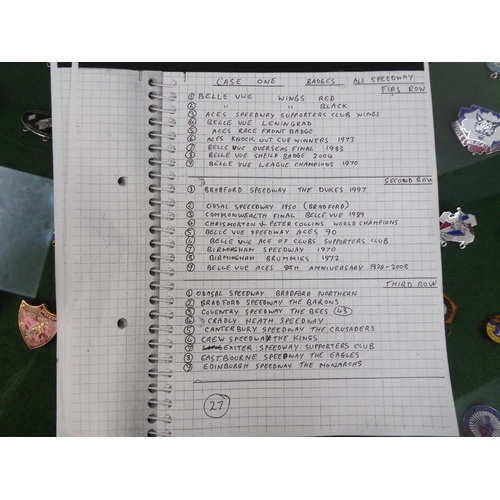 CASE ONE BADGES ALL SPEEDWAY
FIRS ROW
① BELLE VUE WINGS RED
② " " " BLACK
③ ACES SPEEDWAY SUPPORTERS CLUB WINGS
④ BELLE VUE LENINGRAD
⑤ ACES RACE FRONT BADGE
⑥ ACES KNOCK OUT CUP WINNERS 1973
⑦ BELLE VUE OVERSEAS FINAL 1983
⑧ BELLE VUE SHEILD BADGE 2004
⑨ BELLE VUE LEAGUE CHAMPIONS 1970
SECOND ROW
① BRADFORD SPEEDWAY THE DUKES 1997
② ODSAL SPEEDWAY 1950 (BRADFORD)
③ COMMONWEALTH FINAL BELLE VUE 1989
④ CHRIS MORTON & PETER COLLINS WORLD CHAMPIONS
⑤ BELLE VUE SPEEDWAY ACES 90
⑥ BELLE VUE ACE OF CLUBS SUPPORTERS CLUB
⑦ BIRMINGHAM SPEEDWAY 1970
⑧ BIRMINGHAM BRUMMIES 1972
⑨ BELLE VUE ACES 80TH ANNIVERSARY 1928-2008
THIRD ROW
① ODASBL SPEEDWAY BRADFORD NORTHERN
② BRADFORD SPEEDWAY THE BARONS
③ COVENTRY SPEEDWAY THE BEES (43)
④ CRADLY HEATH SPEEDWAY
⑤ CANTERBURY SPEEDWAY THE CRUSADERS
⑥ CREW SPEEDWAY THE KINGS
⑦ EXITER SPEEDWAY SUPPORTERS CLUB
⑧ EASTBOURNE SPEEDWAY THE EAGLES
⑨ EDINBURGH SPEEDWAY THE MONARCHS
27